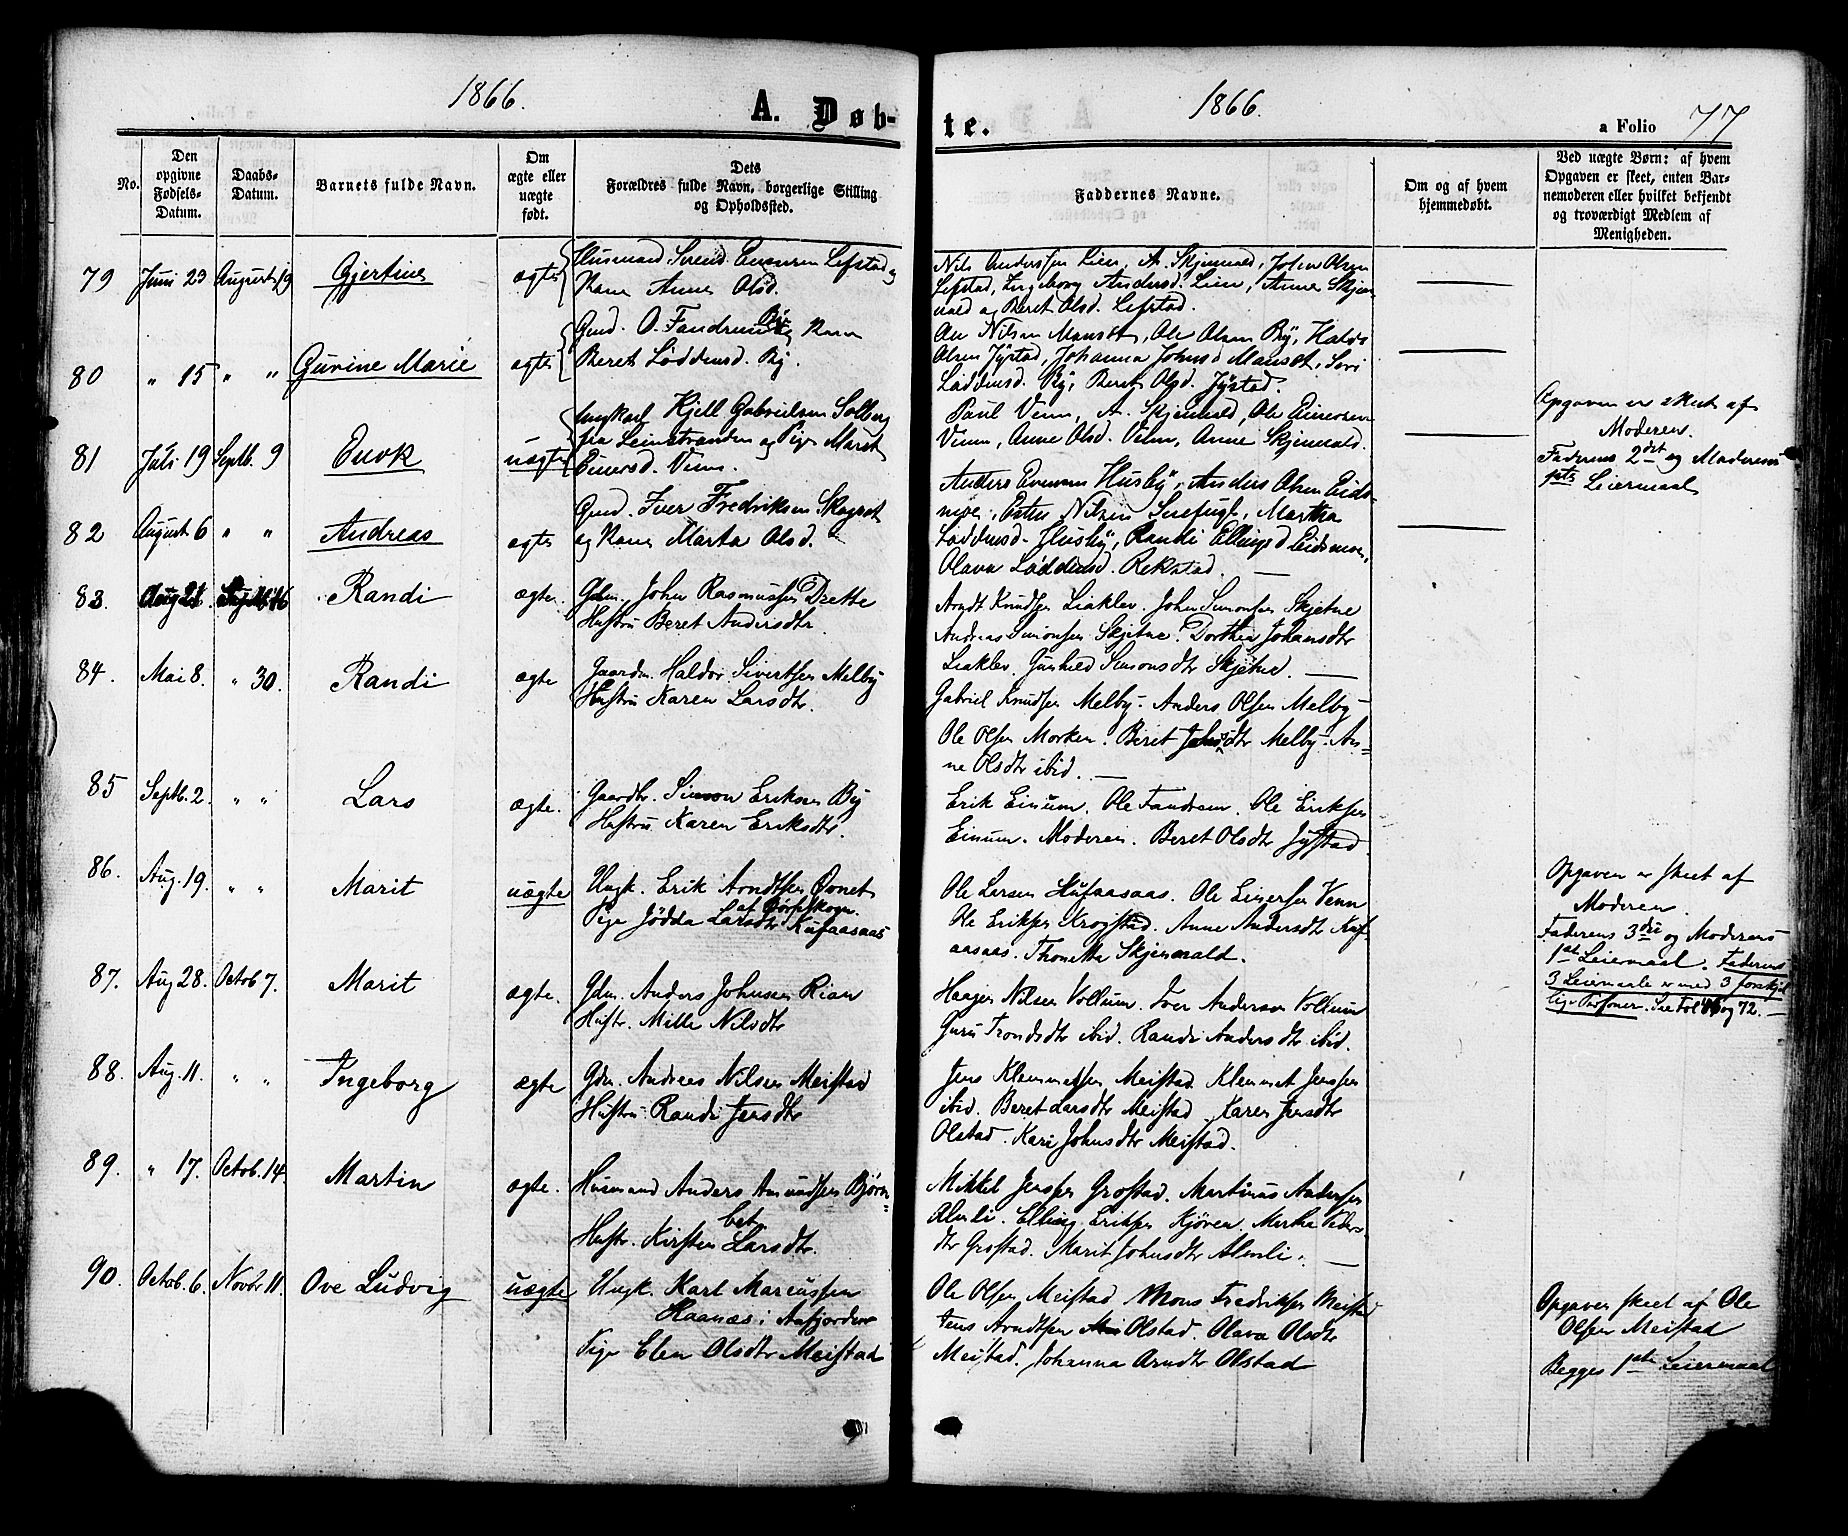 1866.
A. Døb-
No.
Den opgivne Fødsels-Datum.
Daabs-Datum.
Barnets fulde Navn.
Om ægte eller uægte født.
Dets Forældres fulde Navn, borgerlige Stilling og Opholdssted.
79 Juni 23 August 19 Gjertine ægte Husmand Svend Lefstad og
Kone Anne Olsd.
80 " 15 " " Gurine Marie ægte Gmd. O. By og Kone
Beret Loddensd. By.
81 Juli 19 Septb. 9 Enok uægte Ungkarl Kjell Gabrielsen Solberg
fra Leinstranden og Pige Marit
Einersd. Venn.
82 August 6 " " Andreas ægte Gmd. Iver Fredriksen
og Kone Marta Olsd.
83. Aug 21. Septb 16 Randi ægte. Gdm. John Rasmussen Drette
Hustru Beret Andersdtr.
84. Mai 8. " 30. Randi ægte Gaardm. Haldor Sivertsen Melby
Hustru Karen Larsdtr.
85 Septb. 2. " " Lars ægte. Gaardbr. Simon Eriksen By
Hustru Karen Eriksdtr.
86. Aug. 19. " " Marit uægte Ungk. Erik Arndtsen Øvnet
af Børseskogn.
Pige Jødda Larsdtr Kufaasaas
87. Aug 28. Octob 7. Marit ægte. Gdm. Anders Johnsen Rian
Hustr. Mille Nilsdtr
88. Aug. 11. " " Ingeborg ægte Gdm. Andreas Nilsen Meistad
Hustru Randi Jensdtr
89. " 17. Octob. 14. Martin ægte. Husmand Anders Amundsen Bjørn-
bet
Hustr. Kirsten Larsdtr.
90. Octob. 6. Novbr 11. Ove Ludvig uægte Ungk. Karl Marcussen
Haanæs i Aafjorden
Pige Elen Olsdtr Meistad
1866.
te.
a Folio 77
Faddernes Navne.
Om og af hvem hjemmedøbt.
Ved uægte Børn: af hvem Opgaven er skeet, enten Barnemoderen eller hvilket bekjendt og troværdigt Medlem af Menigheden.
Nils Andersen Lien, A. Skjenald, John Olsen
Lefstad, Ingeborg Andersd. Lien, Anne Skjen-
ald og Beret Olsd. Lefstad.
Ole Nilsen Manset, Ole Olsen By, Haldo
Olsen Jystad, Johanna Johnsd Manset, Siri
Loddensd. By, Beret Olsd. Jystad.
Paul Venn, A. Skjenald, Ole Einersen
Venn, Anne Olsd. Venn, Anne Skjenald.
Opgaven er skeet af
Moderen.
Faderens 2det og Moderens
1ste Leiermaal
Anders Evensen Husby, Anders Olsen Eids-
moe, Nilsen Martha
Loddensd. Husby, Randi Ellingsd Eidsmoe,
Olava Loddensd. Rekstad.
Arndt Knudsen Liaklev. John Simonsen Skjetne
Andreas Simonsen Skjetne. Dorthea Johansdtr
Liaklev. Gunhild Simonsdtr Skjetne.
Gabriel Knudsen Melby. Anders Olsen Melby
Ole Olsen Morken. Beret Johnsdtr Melby. An=
ne Olsdtr ibid.
Erik Einum. Ole Fandrem. Ole Eriksen
Einum. Moderen. Beret Olsdtr Jystad
Ole Larsen Kufaasaas. Ole Einersen Venn
Ole Eriksen Krogstad. Anne Andersdtr Kuf-
aasaas. Thonetta Skjenald.
Opgaven er skeet af
Moderen.
Faderens 3die og Moderens
1ste Leiermaal. Faderens
3 Leiermaale er med 3 forskjel
lige Personer. See Fol 46 og 72.
Haagen Nilsen Vollum. Iver Andersen Vollum
Guru Trondsdtr ibid. Randi Andersdtr ibid.
Jens Klemmetsen Meistad. Klemmet Jensen
ibid. Beret Larsdtr Meistad. Karen Jensdtr
Olstad. Kari Johnsdtr Meistad.
Mikkel Jensen Grostad. Martinus Andersen
Almli. Elling Eriksen Kjøren. Marta Peders-
dtr Grostad. Marit Johnsdtr Almli.
Ole Olsen Meistad Mons Fredriksen Meistad
Jens Arndtsen Olstad. Olava Olsdtr
Meistad. Johanna Arndtr Olstad
Opgaven skeet af Ole
Olsen Meistad
Begges 1ste Leiermaal